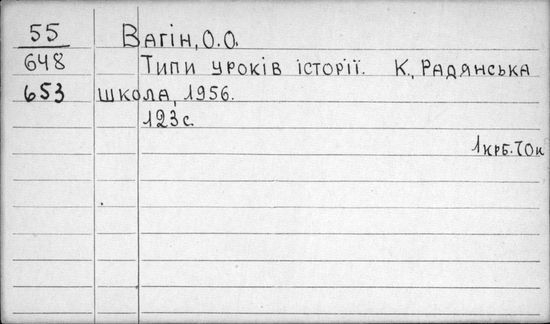 55 Вагін, О.О.
648 Типи уроків історії. К., Радянська
653 школа, 1956.
123 с.
1 крб. 70 к